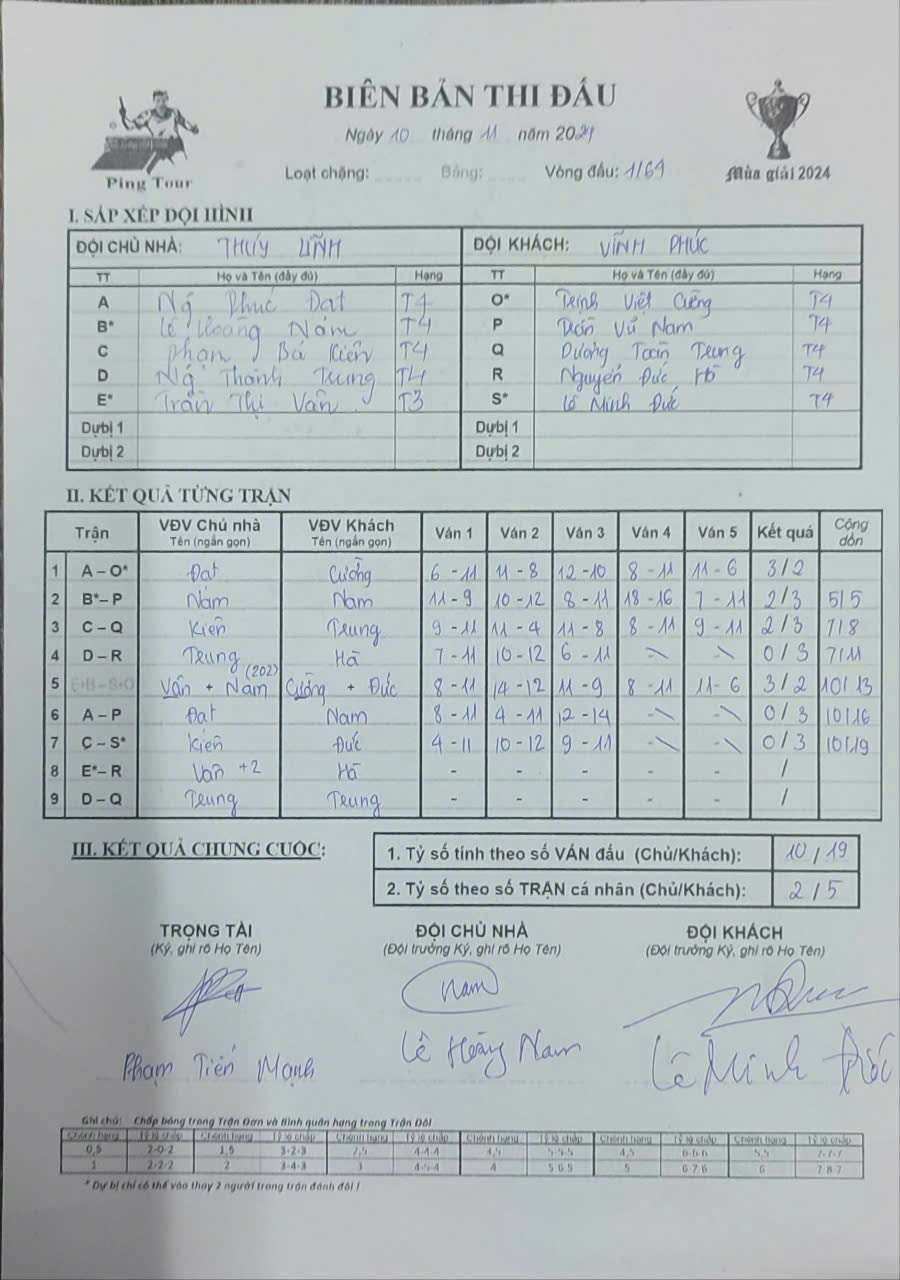 BIÊN BẢN THI ĐẤU
Ngày 10 tháng 11 năm 2024
Ping Tour
Loạt chặng: ..... Bảng: ..... Vòng đấu: 1/64
Mùa giải 2024
I. SẮP XẾP ĐỘI HÌNH
ĐỘI CHỦ NHÀ: THUỲ LĨNH ĐỘI KHÁCH: VĨNH PHÚC
TT Họ và Tên (đầy đủ) Hạng TT Họ và Tên (đầy đủ) Hạng
A Ng Phúc Đạt T4 O* Trịnh Việt Cường T4
B* Lê Hoàng Nam T4 P Trần Vũ Nam T4
C Phạm Bá Kiên T4 Q Dương Toàn Trung T4
D Ng Thành Trung T4 R Nguyễn Đức Hà T4
E* Trần Thị Vân T3 S* Lê Minh Đức T4
Dự bị 1 Dự bị 1
Dự bị 2 Dự bị 2
II. KẾT QUẢ TỪNG TRẬN
Trận VĐV Chủ nhà Tên (ngắn gọn) VĐV Khách Tên (ngắn gọn) Ván 1 Ván 2 Ván 3 Ván 4 Ván 5 Kết quả Cộng dồn
1 A – O* Đạt Cường 6 - 11 11 - 8 12 - 10 8 - 11 11 - 6 3 / 2
2 B* – P Nam Nam 11 - 9 10 - 12 8 - 11 18 - 16 7 - 11 2 / 3 5/5
3 C – Q Kiên Trung 9 - 11 11 - 4 11 - 8 8 - 11 9 - 11 2 / 3 7/8
4 D – R Trung Hà 7 - 11 10 - 12 6 - 11 - - 0 / 3 7/11
5 E+B – S+O Vân + Nam (202) Cường + Đức 8 - 11 14 - 12 11 - 9 8 - 11 11 - 6 3 / 2 10/13
6 A – P Đạt Nam 8 - 11 4 - 11 12 - 14 - - 0 / 3 10/16
7 C – S* Kiên Đức 4 - 11 10 - 12 9 - 11 - - 0 / 3 10/19
8 E* – R Vân +2 Hà - - - - - /
9 D – Q Trung Trung - - - - - /
III. KẾT QUẢ CHUNG CUỘC:
1. Tỷ số tính theo số VÁN đấu (Chủ/Khách): 10 / 19
2. Tỷ số theo số TRẬN cá nhân (Chủ/Khách): 2 / 5
TRỌNG TÀI ĐỘI CHỦ NHÀ ĐỘI KHÁCH
(Ký, ghi rõ Họ Tên) (Đội trưởng Ký, ghi rõ Họ Tên) (Đội trưởng Ký, ghi rõ Họ Tên)
Nam
Phạm Tiến Mạnh Lê Hoàng Nam Lê Minh Đức
Ghi chú: Chấp bóng trong Trận Đơn và Bình quân hạng trong Trận Đôi
Chênh hạng Tỷ lệ chấp Chênh hạng Tỷ lệ chấp Chênh hạng Tỷ lệ chấp Chênh hạng Tỷ lệ chấp Chênh hạng Tỷ lệ chấp Chênh hạng Tỷ lệ chấp
0,5 2-0-2 1,5 3-2-3 2,5 4-4-4 5-5-5 4,5 6-6-6 5,5 7-7-7
1 2-2-2 2 3-4-3 3 4-5-4 4 5 6 5 5 6 7 6 6 7 8 7
* Dự bị chỉ có thể vào thay 2 người trong trận đánh đôi !